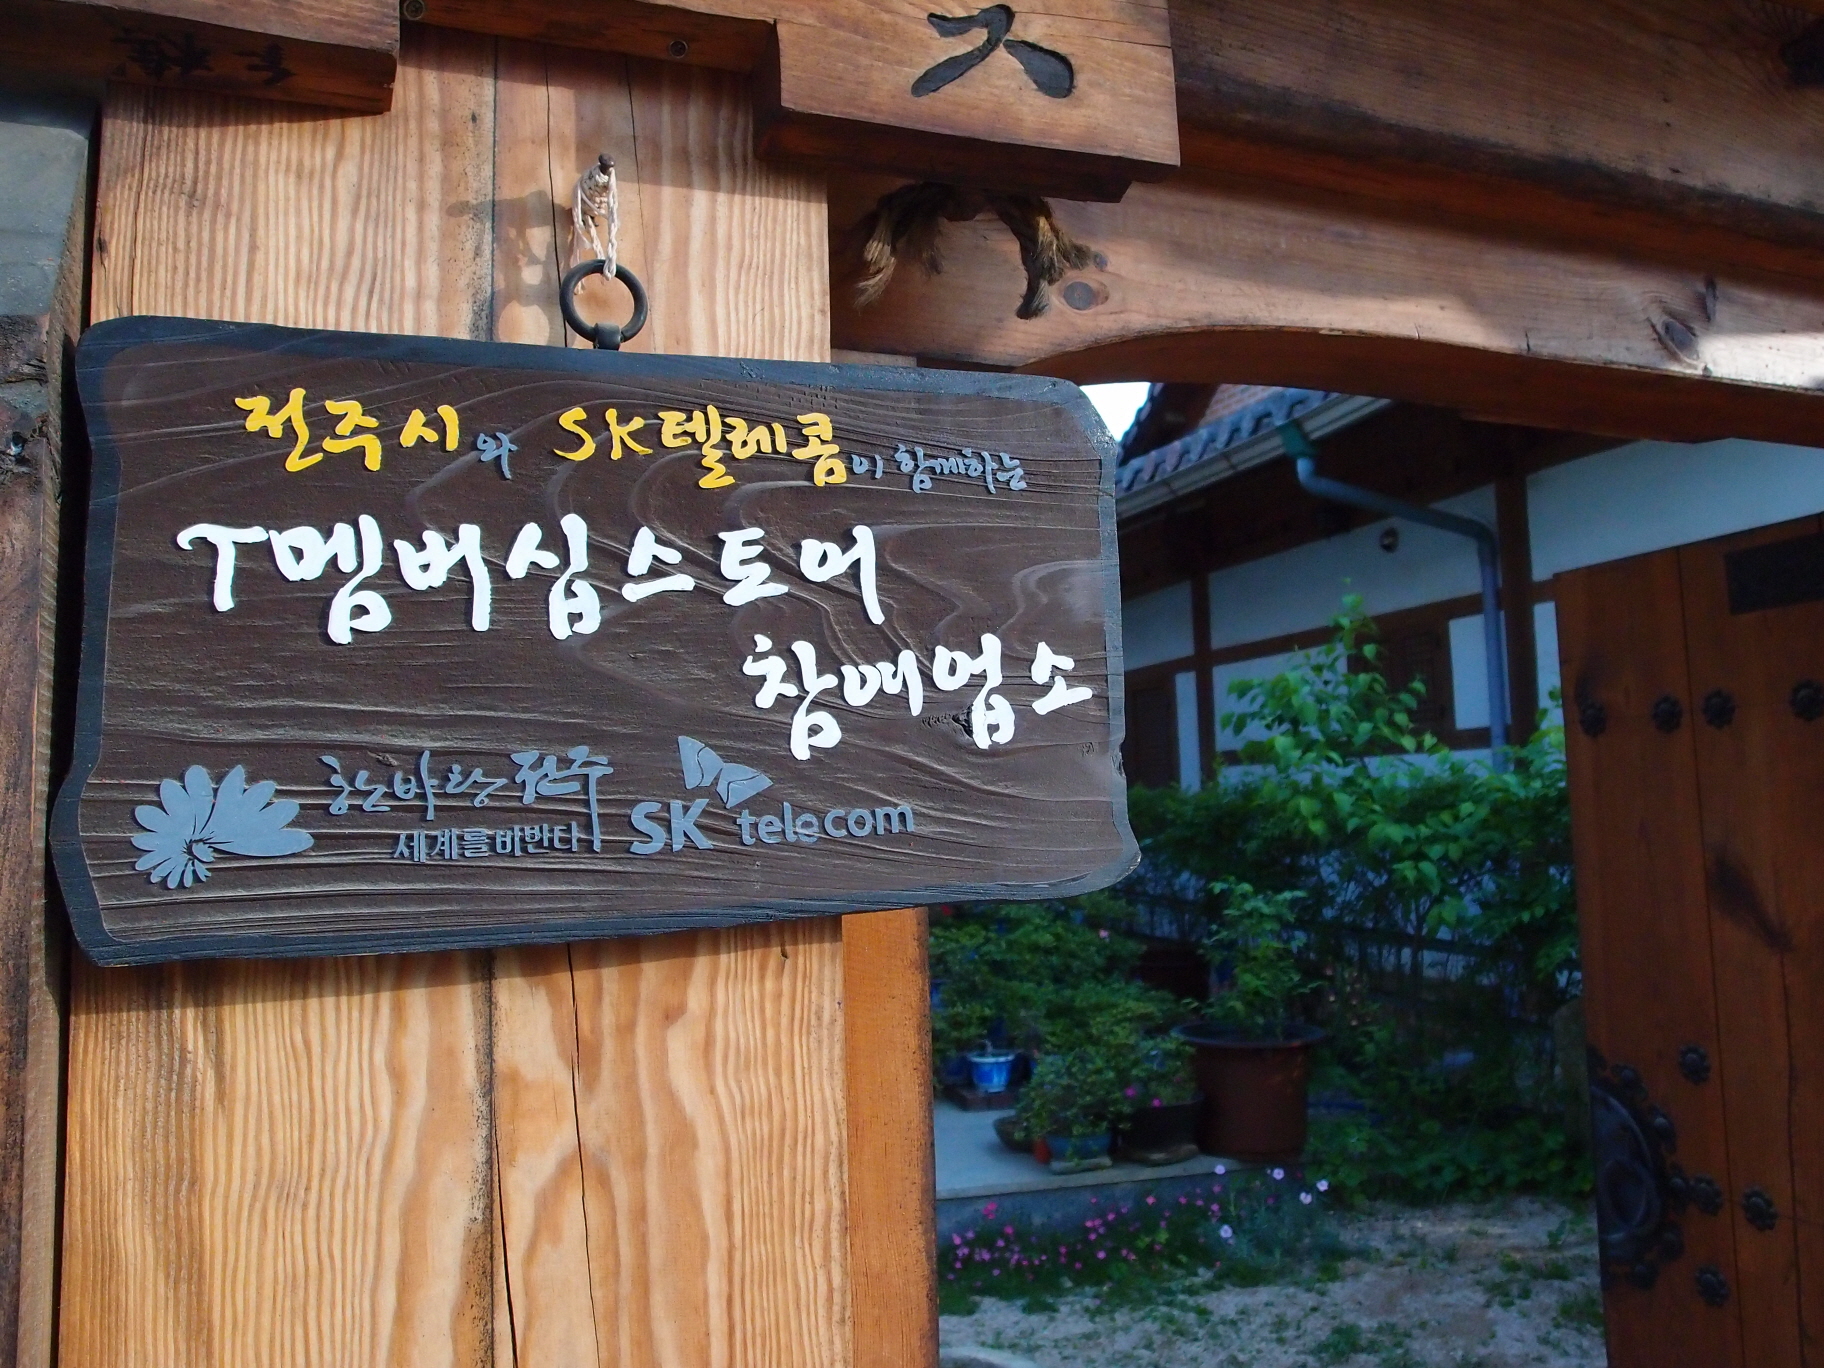 스
전주시와 SK텔레콤이 함께하는
T멤버십스토어
참여업소
한바탕전주
세계를비빈다
SK telecom